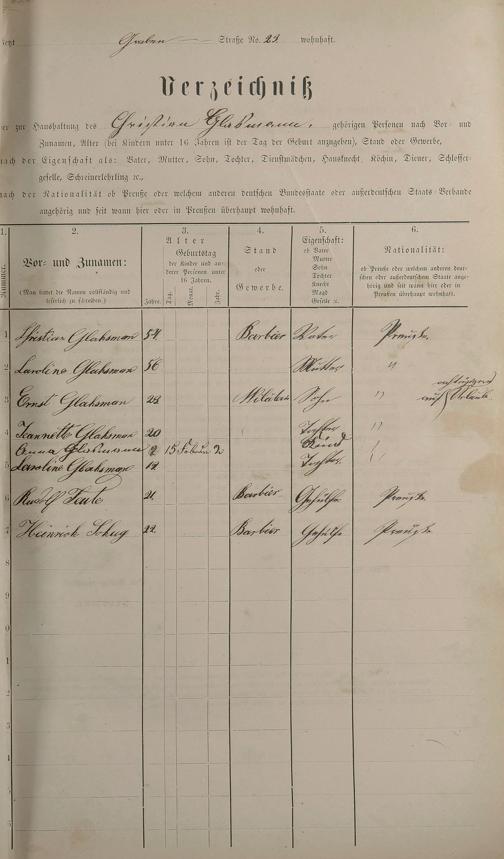 Jetzt Graben Straße No. 23. wohnhaft.
Verzeichniß
der zur Haushaltung des Christian Glaßmann, gehörigen Personen nach Vor- und
Zunamen, Alter (bei Kindern unter 16 Jahren ist der Tag der Geburt anzugeben), Stand oder Gewerbe,
nach der Eigenschaft als: Vater, Mutter, Sohn, Tochter, Dienstmädchen, Hausknecht, Köchin, Diener, Schlosser-
geselle, Schreinerlehrling ꝛc.,
nach der Nationalität ob Preuße oder welchem anderen deutschen Bundesstaate oder außerdeutschen Staats-Verbande
angehörig und seit wann hier oder in Preußen überhaupt wohnhaft.
1. 2. 3. 4. 5. 6.
Nummer.
Vor- und Zunamen:
(Man bittet die Namen vollständig und leserlich zu schreiben.)
Alter
Jahre.
Geburtstag
der Kinder und anderer Personen unter 16 Jahren.
Tag. Monat. Jahr.
Stand
oder
Gewerbe.
Eigenschaft:
ob Vater
Mutter
Sohn
Tochter
Knecht
Magd
Geselle ꝛc.
Nationalität:
ob Preuße oder welchem anderen deutschen oder außerdeutschen Staate angehörig und seit wann hier oder in Preußen überhaupt wohnhaft.
1 Christian Glahsman 54 Barbier Vater Preuße
2 Caroline Glahsman 56 Mutter "
3 Ernst Glahsman 23 Militair Sohn " auf Urlaub
4 Jeannette Glahsman 20 Tochter "
Anna Glahsmann 2 15 Februar 2 Kind
5 Caroline Glahsman 18 Tochter "
6 Rudolf 21 Barbier Gehülfe Preuße
7 Heinrich Schug 22 Barbier Gehülfe Preuße
8
9
0
1
2
3
4
5